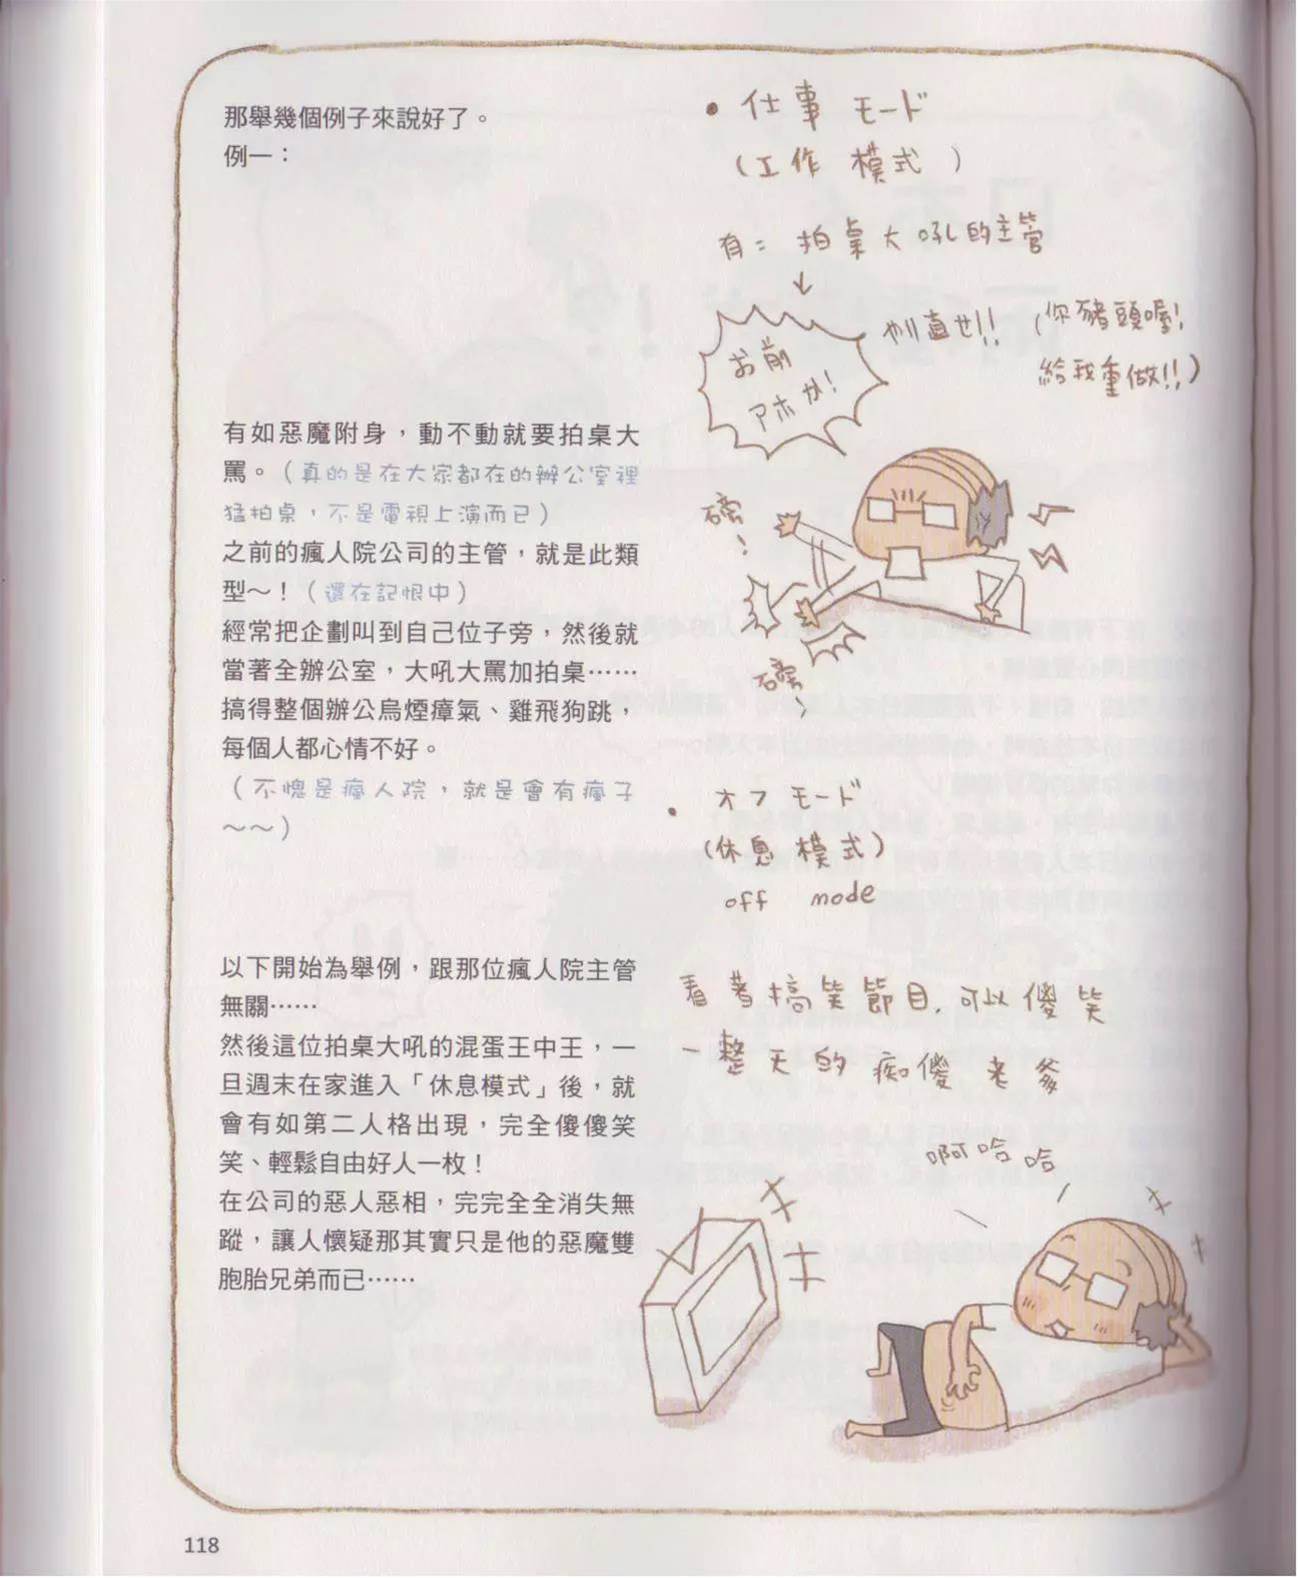 那舉幾個例子來說好了。
例一：
• 仕事 モード
（工作 模式）
有：拍桌大吼的主管
お前
アホか！
やり直せ!!
（你豬頭喔！
給我重做!!）
有如惡魔附身，動不動就要拍桌大
罵。（真的是在大家都在的辦公室裡
猛拍桌，不是電視上演而已）
之前的瘋人院公司的主管，就是此類
型～！（還在記恨中）
經常把企劃叫到自己位子旁，然後就
當著全辦公室，大吼大罵加拍桌……
搞得整個辦公烏煙瘴氣、雞飛狗跳，
每個人都心情不好。
（不愧是瘋人院，就是會有瘋子
～～）
磅！
磅！
• オフ モード
（休息 模式）
off mode
以下開始為舉例，跟那位瘋人院主管
無關……
然後這位拍桌大吼的混蛋王中王，一
旦週末在家進入「休息模式」後，就
會有如第二人格出現，完全傻傻笑
笑、輕鬆自由好人一枚！
在公司的惡人惡相，完完全全消失無
蹤，讓人懷疑那其實只是他的惡魔雙
胞胎兄弟而已……
看著搞笑節目，可以傻笑
一整天的痴傻老爹
啊哈哈
118